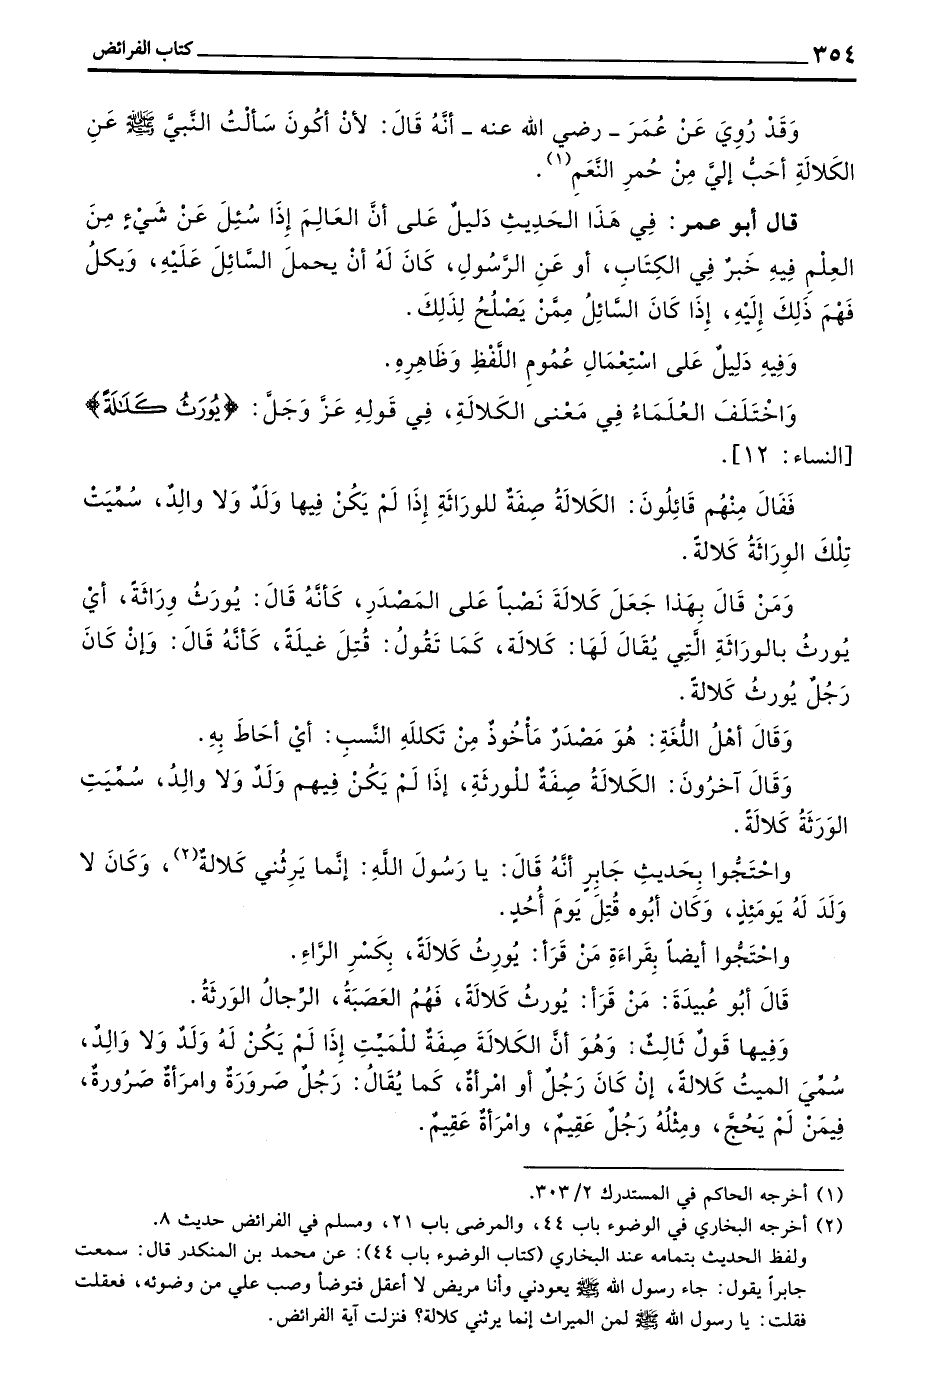 ٣٥٤ كتاب الفرائض
وَقَدْ رُوِيَ عَنْ عُمَرَ ـ رضي الله عنه ـ أنَّهُ قَالَ: لأنْ أكُونَ سَألْتُ النَّبِيَّ ﷺ عَنِ
الكَلالَةِ أحَبُّ إليَّ مِنْ حُمرِ النَّعَمِ(١).
قال أبو عمر: فِي هَذَا الحَدِيثِ دَلِيلٌ عَلى أنَّ العَالِمَ إذَا سُئِلَ عَنْ شَيْءٍ مِنَ
العِلْمِ فِيهِ خَبرٌ فِي الكِتَابِ، أو عَنِ الرَّسُولِ، كَانَ لَهُ أنْ يحملَ السَّائِلَ عَلَيْهِ، وَيكلُ
فَهْمَ ذَلِكَ إلَيْهِ، إذَا كَانَ السَّائِلُ مِمَّنْ يَصْلُحُ لِذَلِكَ.
وَفِيهِ دَلِيلٌ عَلى اسْتِعْمَالِ عُمُومِ اللَّفْظِ وَظَاهِرِهِ.
وَاخْتَلَفَ العُلَمَاءُ فِي مَعْنى الكَلالَةِ، فِي قَولِهِ عَزَّ وَجَلَّ: ﴿يُورَثُ كَلَالَةً﴾
[النساء: ١٢].
فَقَالَ مِنْهُم قَائِلُونَ: الكَلالَةُ صِفَةٌ للوِرَاثَةِ إذَا لَمْ يَكُنْ فِيها وَلَدٌ وَلا والِدٌ، سُمِّيَتْ
تِلْكَ الوِرَاثَةُ كَلالةً.
وَمَنْ قَالَ بِهَذا جَعَلَ كَلالةَ نَصْباً عَلى المَصْدَرِ، كَأنَّهُ قَالَ: يُورَثُ وِرَاثَةً، أيْ
يُورثُ بالوِرَاثَةِ الَّتِي يُقَالُ لَهَا: كَلالة، كَمَا تَقُولُ: قُتِلَ غيلَةً، كَأنَّهُ قَالَ: وَإنْ كَانَ
رَجُلٌ يُورثُ كَلالةً.
وَقَالَ أهْلُ اللُّغَةِ: هُوَ مَصْدَرٌ مَأْخُوذٌ مِنْ تَكللَهِ النَّسبِ: أيْ أحَاطَ بِهِ.
وَقَالَ آخرُونَ: الكَلالَةُ صِفَةٌ للْورثَةِ، إذَا لَمْ يَكُنْ فِيهم وَلَدٌ وَلا والِدُ، سُمِّيَتِ
الوَرَثَةُ كَلالَةً.
واحْتَجُّوا بِحَديثِ جَابِرٍ أنَّهُ قَالَ: يا رَسُولَ اللَّهِ: إنَّما يَرِثُني كَلالةٌ(٢)، وَكَانَ لا
وَلَدَ لَهُ يَومَئِذٍ، وَكَان أبُوه قُتِلَ يَومَ أُحُدٍ.
واحْتَجُّوا أيضاً بِقَراءَةِ مَنْ قَرَأ: يُورِثُ كَلالَةً، بِكَسْرِ الرَّاءِ.
قَالَ أبُو عُبيدَةَ: مَنْ قَرَأ: يُورثُ كَلالَةً، فَهُمُ العَصَبَةُ، الرِّجالُ الوَرثَةُ.
وَفِيها قَولٌ ثَالِثٌ: وَهُوَ أنَّ الكَلالَةَ صِفَةٌ للْمَيِّتِ إذَا لَمْ يَكُنْ لَهُ وَلَدٌ وَلا وَالِدٌ،
سُمِّيَ الميتُ كَلالةً، إنْ كَانَ رَجُلٌ أو امْرأةٌ، كَما يُقَالُ: رَجُلٌ صَرورَةٌ وامرَأةٌ صَرُورةٌ،
فِيمَنْ لَمْ يَحُجَّ، ومِثْلُهُ رَجُلٌ عَقِيمٌ، وامْرَأةٌ عَقِيمٌ.
(١) أخرجه الحاكم في المستدرك ٢/ ٣٠٣.
(٢) أخرجه البخاري في الوضوء باب ٤٤، والمرضى باب ٢١، ومسلم في الفرائض حديث ٨.
ولفظ الحديث بتمامه عند البخاري (كتاب الوضوء باب ٤٤): عن محمد بن المنكدر قال: سمعت
جابراً يقول: جاء رسول الله ﷺ يعودني وأنا مريض لا أعقل فتوضأ وصب علي من وضوئه، فعقلت
فقلت: يا رسول الله ﷺ لمن الميراث إنما يرثني كلالة؟ فنزلت آية الفرائض.